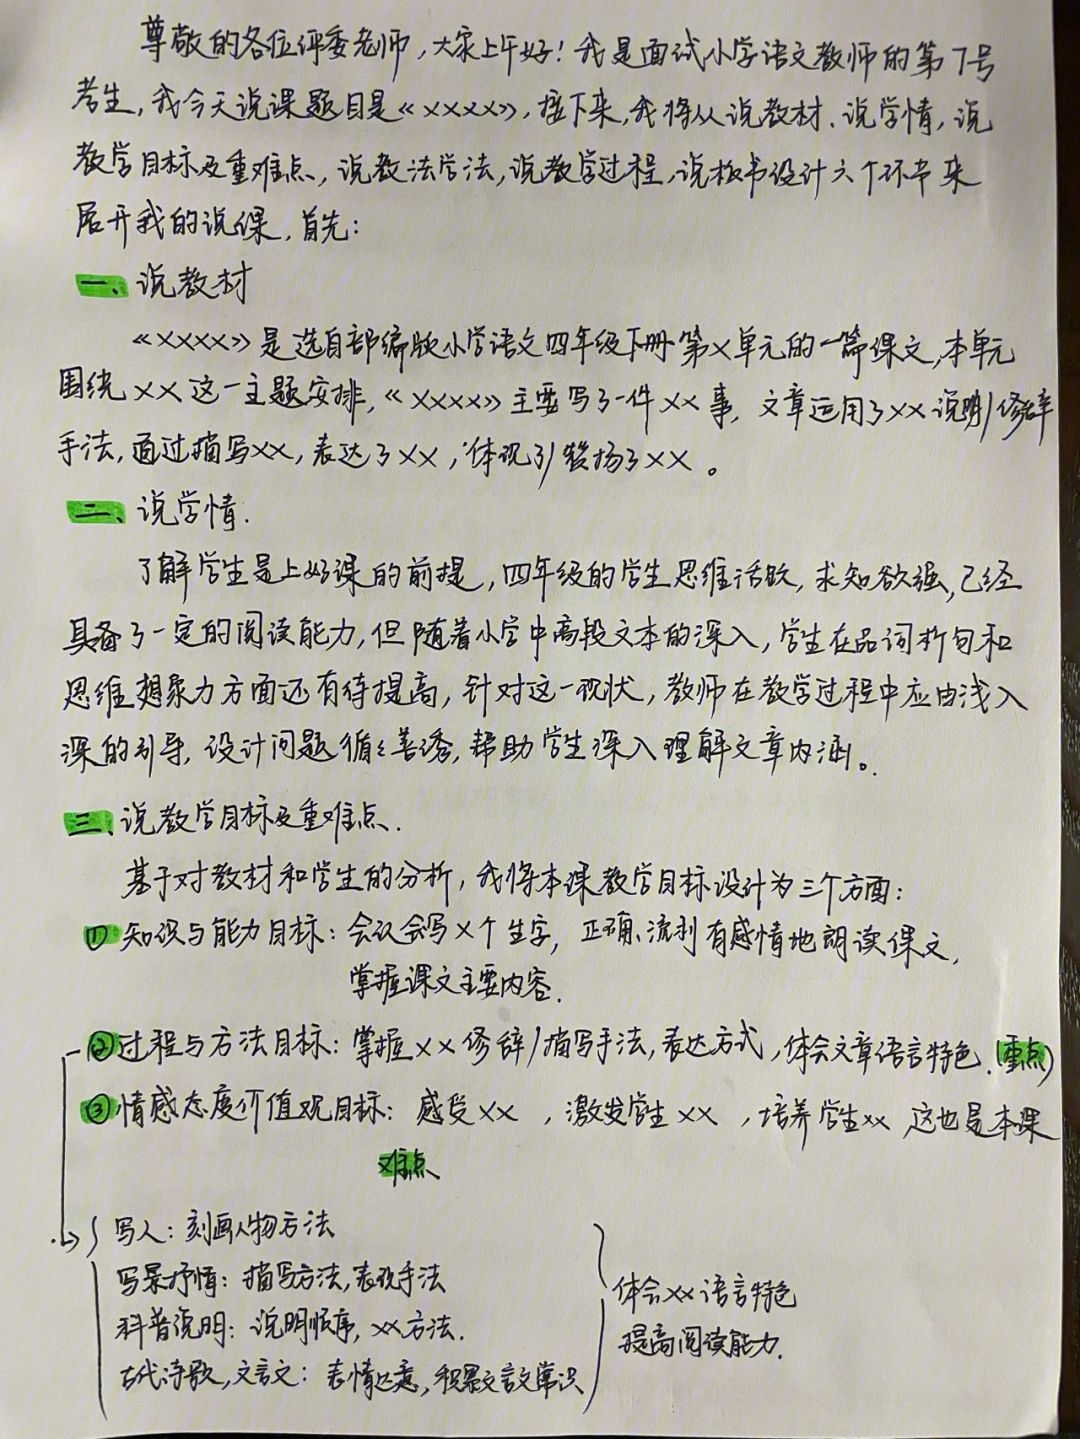 尊敬的各位评委老师，大家上午好！我是面试小学语文教师的第7号
考生，我今天说课题目是《××××》，接下来，我将从说教材、说学情，说
教学目标及重难点，说教法学法，说教学过程，说板书设计六个环节来
展开我的说课，首先：
一、说教材
《××××》是选自部编版小学语文四年级下册第×单元的一篇课文，本单元
围绕××这一主题安排，《××××》主要写了一件××事，文章运用了××说明/修辞
手法，通过描写××，表达了××，体现了/赞扬了××。
二、说学情.
了解学生是上好课的前提，四年级的学生思维活跃，求知欲强，已经
具备了一定的阅读能力，但随着小学中高段文本的深入，学生在品词析句和
思维想象力方面还有待提高，针对这一现状，教师在教学过程中应由浅入
深的引导，设计问题循循善诱，帮助学生深入理解文章内涵。
三、说教学目标及重难点.
基于对教材和学生的分析，我将本课教学目标设计为三个方面：
①知识与能力目标：会认会写×个生字，正确、流利有感情地朗读课文，
掌握课文主要内容.
②过程与方法目标：掌握××修辞/描写手法，表达方式，体会文章语言特色.(重点)
③情感态度价值观目标：感受××，激发学生××，培养学生××，这也是本课
难点
写人：刻画人物方法
写景抒情：描写方法，表现手法
科普说明：说明顺序，××方法.
古代诗歌，文言文：表情达意，积累文言文常识
体会××语言特色
提高阅读能力.